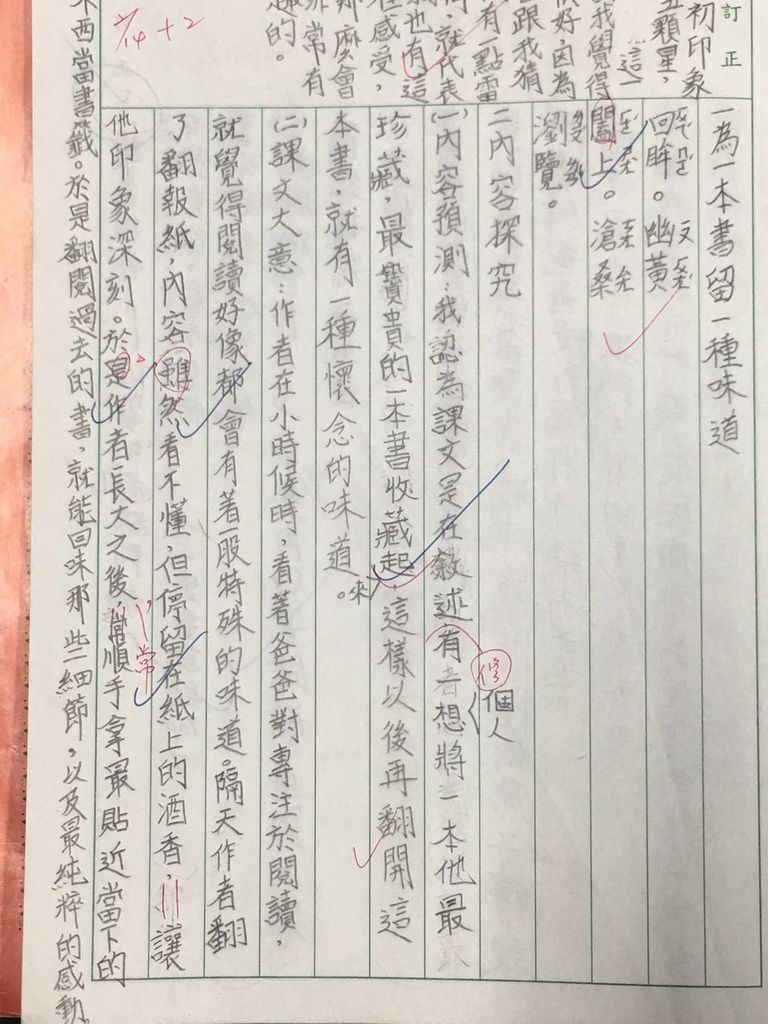 訂正
初印象
五顆星，
這一
我覺得
很好，因為
跟我猜
有一點雷
，就代表
也有這
在感受，
那麼會
非常有
趣的。
9/14+2
一為一本書留一種味道
回眸。幽黃
闔上。滄桑
瀏覽。
二內容探究
(一)內容預測：我認為課文是在敘述有一個人想將一本他最
珍藏，最寶貴的一本書收藏起來，這樣以後再翻開這
本書，就有一種懷念的味道。
(二)課文大意：作者在小時候時，看著爸爸對專注於閱讀，
就覺得閱讀好像都會有著一股特殊的味道。隔天作者翻
了翻報紙，內容雖然看不懂，但停留在紙上的酒香，讓
他印象深刻。於是作者長大之後，常順手拿最貼近當下的
東西當書籤。於是翻閱過去的書，就能回味那些細節，以及最純粹的感動。
常
修